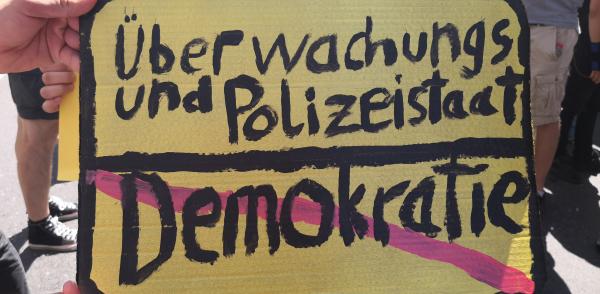 Überwachungs
und Polizeistaat
Demokratie